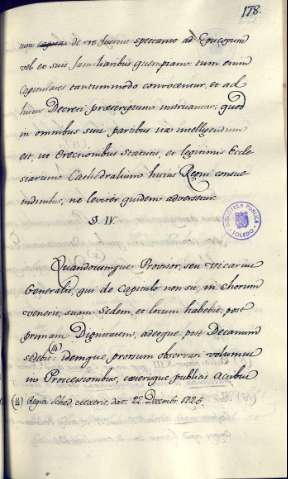 178.
non de re livime spectante ad Episcopum
vel eo suis familiaribus quempiam tum enim
Capitulares tantummodo convocentur, et ad
huius Decreti præscriptum instruantur, quod
in omnibus suis partibus ita intelligendum
est, ut Erectionibus Statutis, et legitimis Eccle
siarum Cathedralium huius Regni consue
tudinibus, ne leviter quidem adversetur.
§. IV.
Quandocumque Provisor, seu Vicarius
Generalis, qui de Capitulo non sit, in Chorum
venerit, suam Sedem, et locum habebit, post
primam Dignitatem, adeoque post Decanum
sedebit (a) idemque prorsum observari volumus
in Processionibus, cæterisque publicis Actibus
(a) Regia Sched. dat. 22. Decembr. 1725.
BIBLIOTECA PUBLICA
TOLEDO